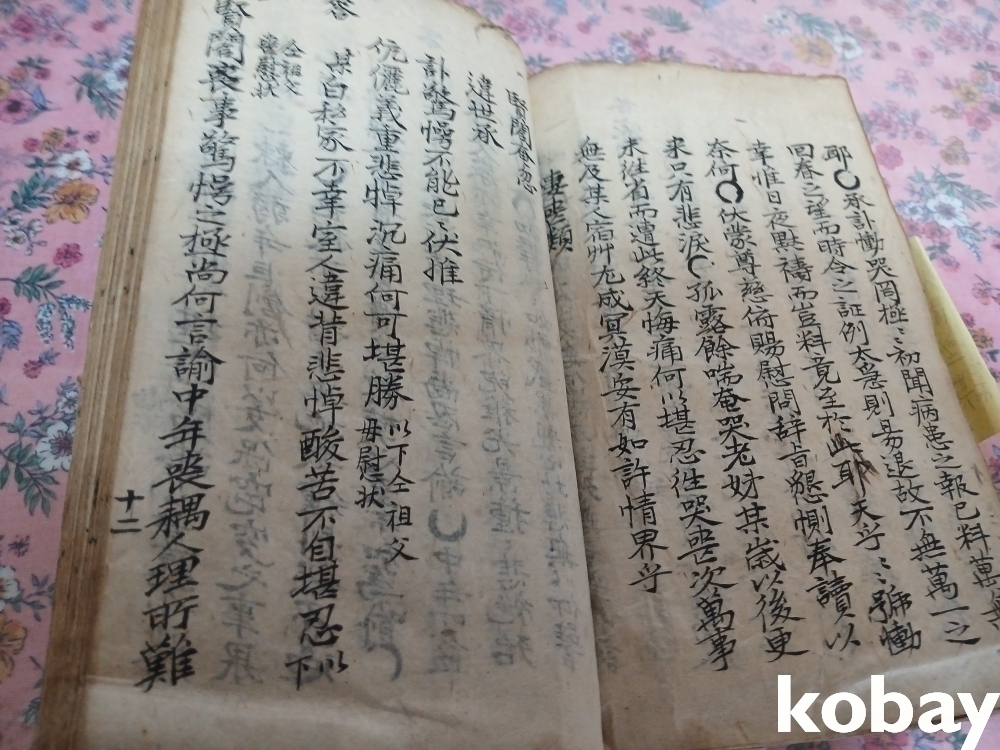 耶○承訃慟哭罔極〻初聞病患之報已料萬無
回春之望而時令之証例太急則易退故不無萬一之
幸惟日夜默禱而豈料竟至於此耶天乎〻號慟
奈何○伏蒙尊慈俯賜慰問辞旨懇惻奉讀以
來只有悲淚○孤露餘喘奄哭老妣某歲以後更
未往省而遭此終天悔痛何以堪忍徃哭喪次萬事
無及某人宿艸尤成冥漠安有如許情界乎
妻喪類
賢閤奄忽
違世承
訃驚愕不能已〻伏惟
伉儷義重悲悼沉痛何可堪勝以下仝祖父
母慰状
答
某白私家不幸室人違昔悲悼酸苦不自堪忍以
下
仝祖父
母慰状
賢閤喪事驚愕之極尚何言諭中年喪耦人理所難
十二
kobay